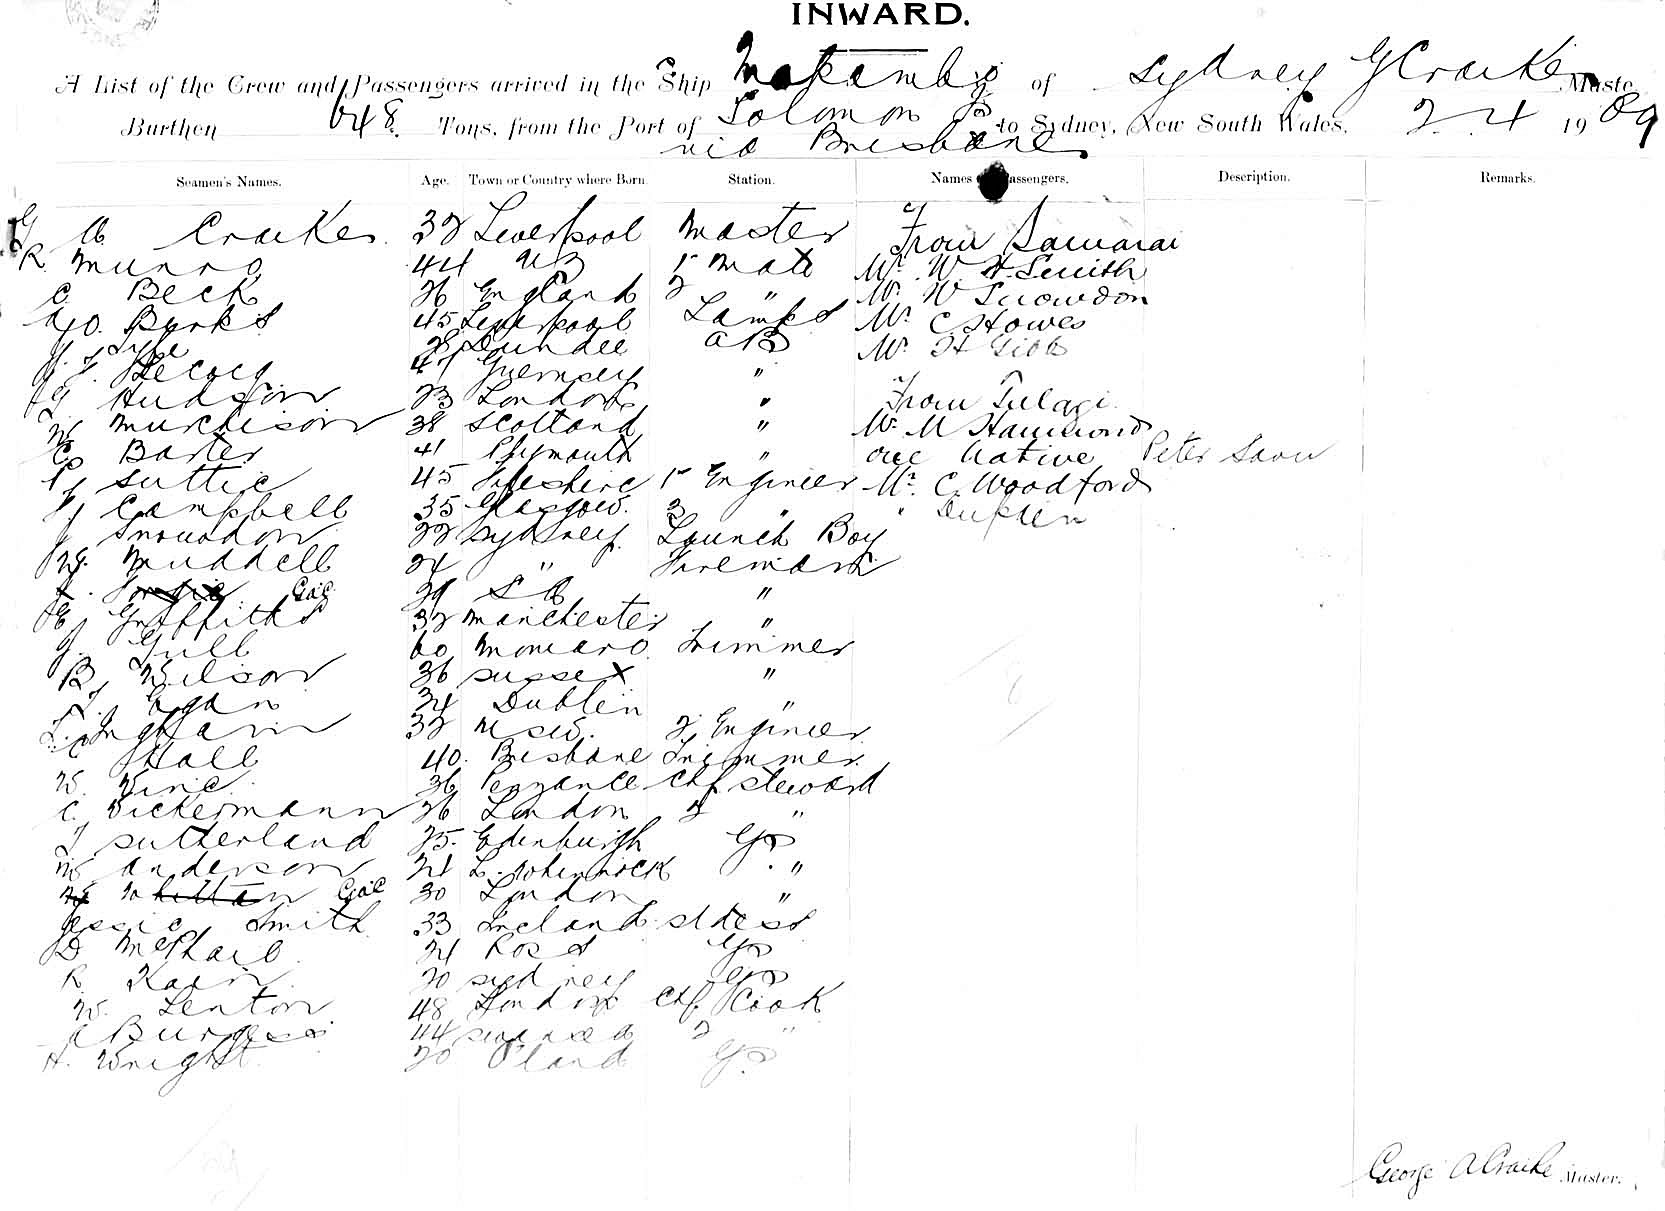 INWARD.
A List of the Crew and Passengers arrived in the Ship Makambo of Sydney G Craike Maste
Burthen 648 Tons, from the Port of Solomon Is to Sydney, New South Wales, 2.4 1909
via Brisbane
Seamen's Names. Age. Town or Country where Born Station. Names Passengers. Description. Remarks.
G A Craike 32 Liverpool Master From Samarai
R. Munro 44 NZ 1st Mate Mr. W. H. Smith
C. Beck 26 England 2 " Mr. W Snowdon
Burks 45 Liverpool Lamps Mr. C. Howes
28 Dundee AB Mr. H Gibb
41 Guernsey "
G Hudson 23 London " From Tulagi.
Murchison 38 Scotland " Mr. M Hammond
Baxter 41 Plymouth " one Native Peter Saou
Suttie 45 Fifeshire 1st Engineer Mr. C. Woodford
J Campbell 35 Glasgow. 3 " "
J Snowdon 22 Sydney. Launch Boy
W. Muddell 24 " Fireman
29 S A "
E Griffiths 32 Manchester "
J. Gill 60 Monaro Trimmer
B Wilson 36 Sussex "
T. Egan 34 Dublin "
Ingham 32 NSW. 2 Engineer
C Hall 40. Brisbane Trimmer.
W. 36 Penzance Chf Steward
C. Dickermann 26 London 2 "
J Sutherland 25. Edinburgh GS
W Anderson 21 "
W Whittan 30 London "
Jessie Smith 33 Ireland Stdess
D McPhail 21 Ross GS
R. Kain 20 Sydney GS
W. Lenton 48 London Chf Cook
Burgess 44 Swansea 2 "
H. Wright 20 GS
George A Craike Master.